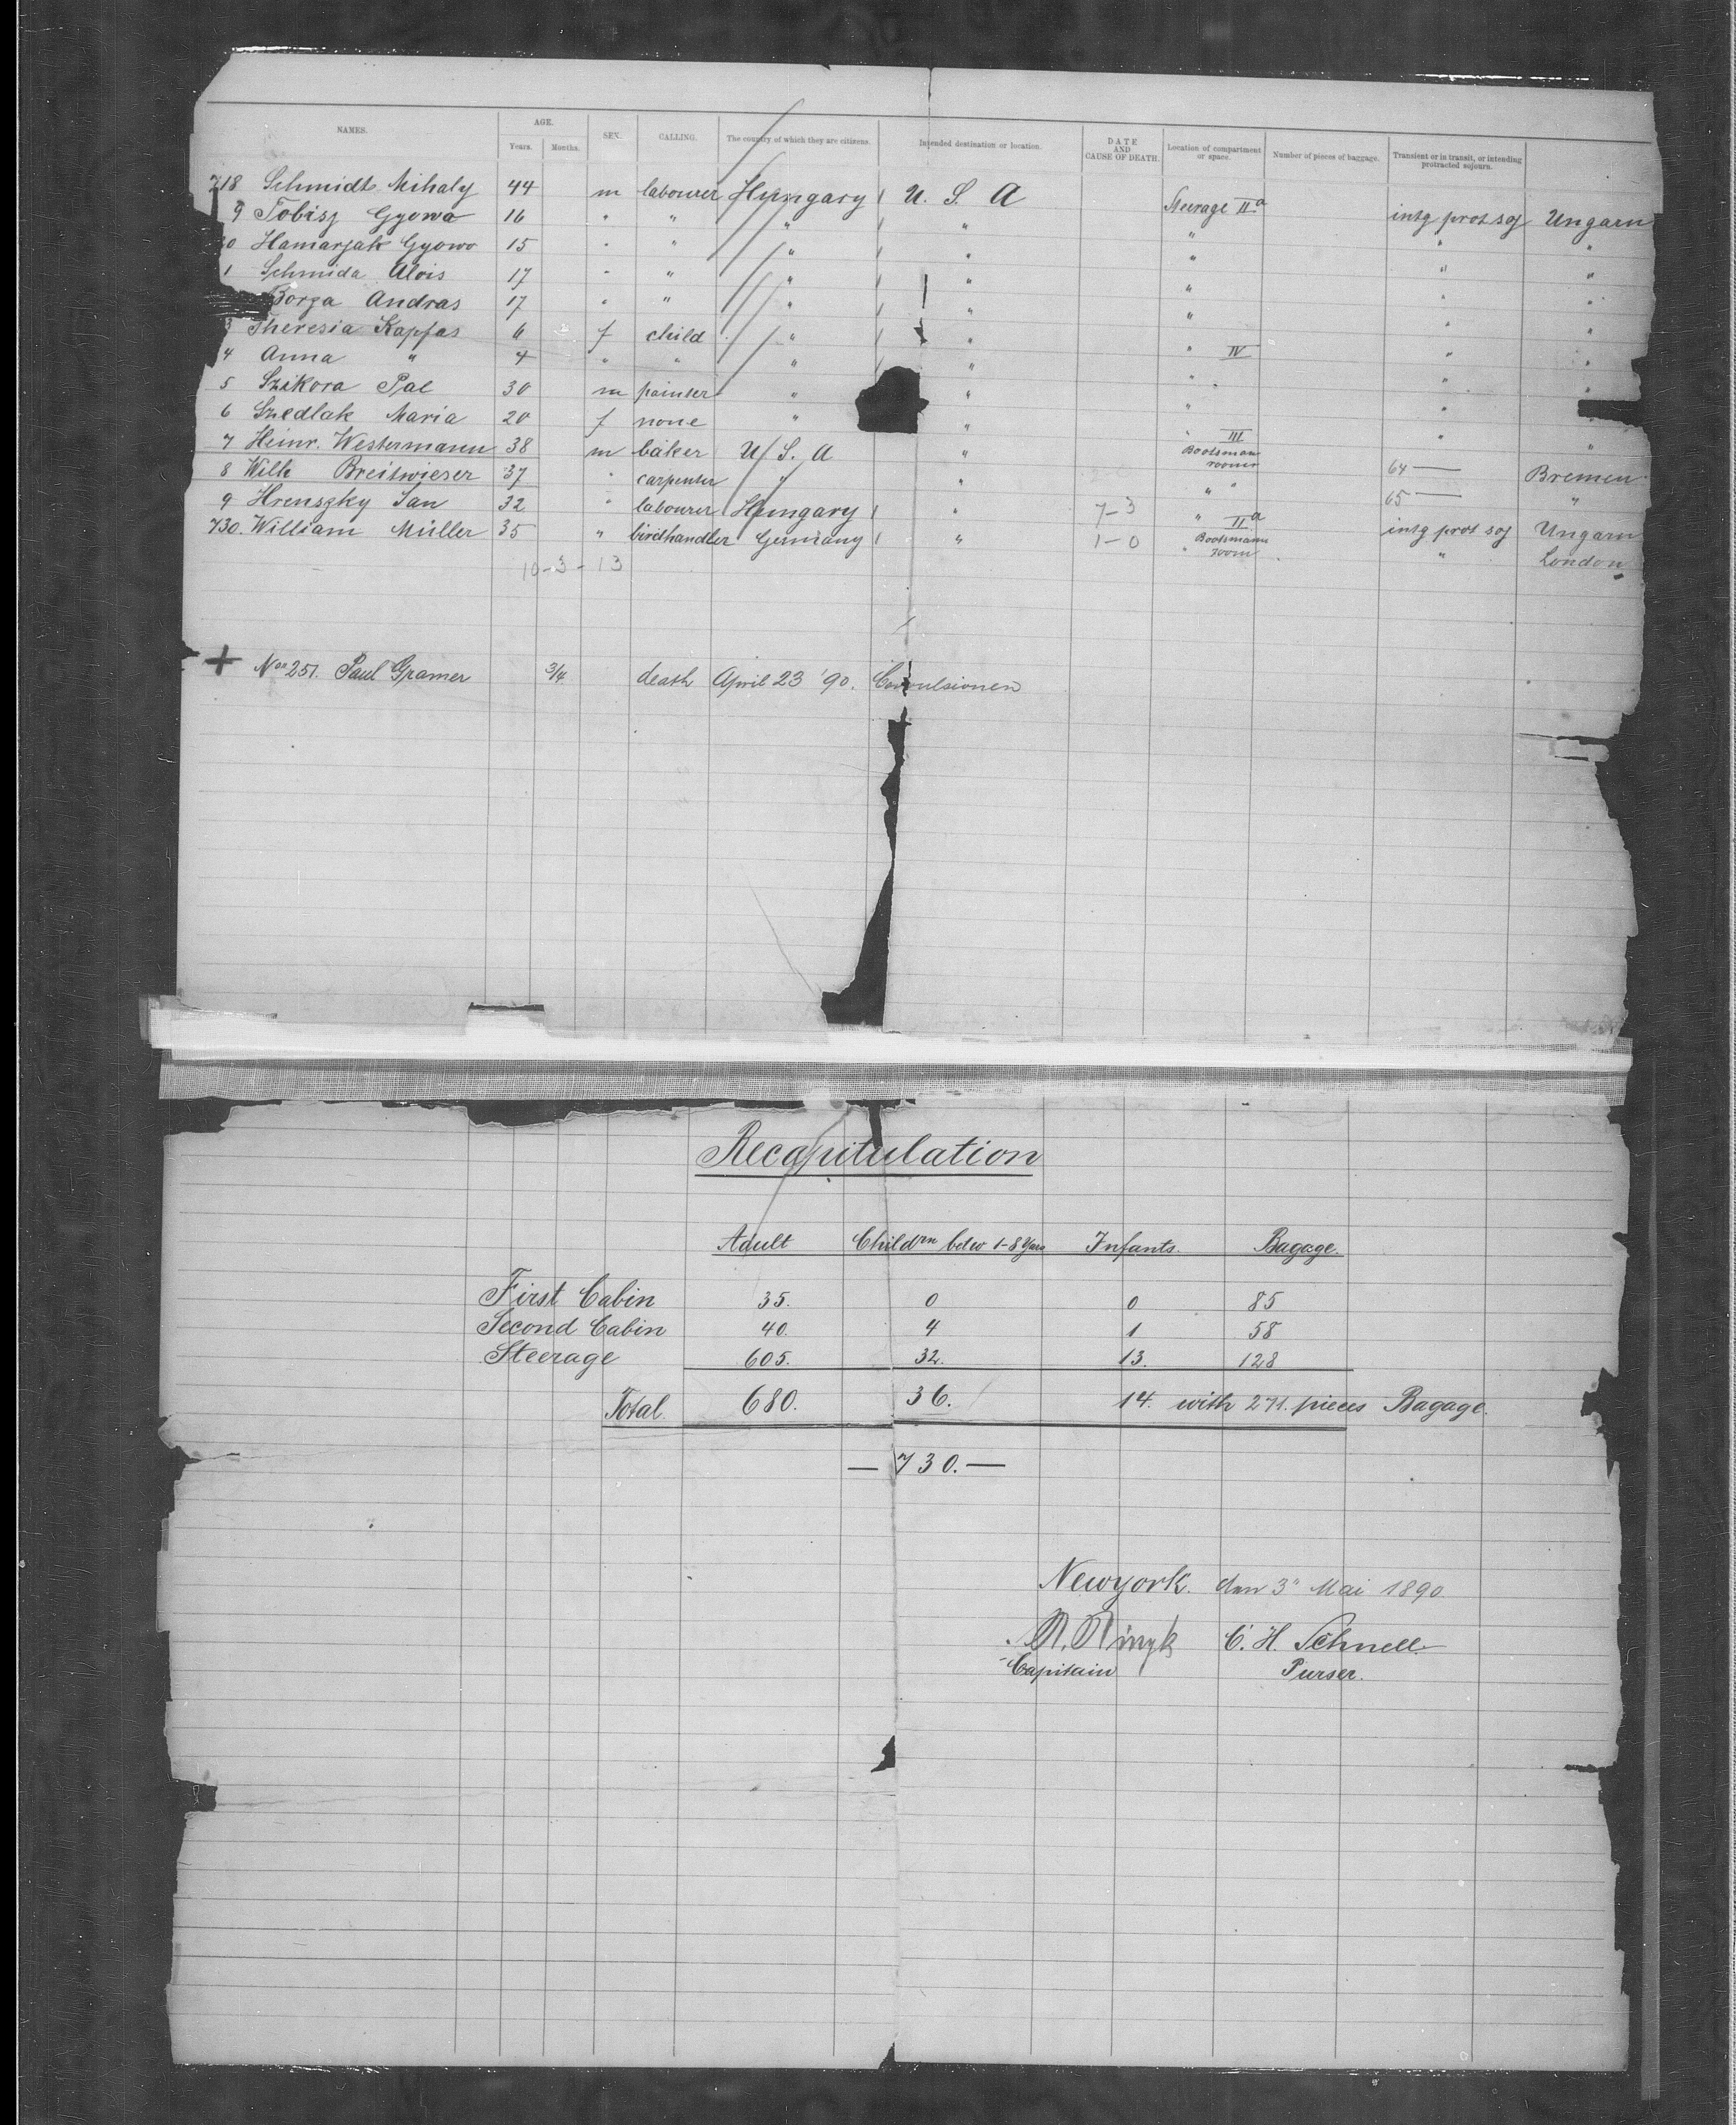 NAMES. AGE. Years. Months. SEX. CALLING. The country of which they are citizens. Intended destination or location. DATE AND CAUSE OF DEATH. Location of compartment or space. Number of pieces of baggage. Transient or in transit, or intending protracted sojourn.
718 Schmidt Mihaly 44 m labourer Hungary U. S. A Steerage IIa intg prot soj Ungarn
9 Tobisz Gyowa 16 " " " " " " "
0 Hamarjak Gyowo 15 " " " " " " "
1 Schmida Alois 17 " " " " " " "
Borza Andras 17 " " " " " " "
3 Theresia Kapfas 6 f child " " " IV " "
4 Anna " 4 " " " " " " "
5 Szikora Pal 30 m painter " " " " "
6 Szedlak Maria 20 f none " " " III " "
7 Heinr. Westermann 38 m baker U. S. A " Bootsmann room 64 — Bremen
8 Wilh Breitwieser 37 " carpenter " " " " 65 — "
9 Hrenszky Jan 32 " labourer Hungary " 7-3 " IIa intg prot soj Ungarn
730. William Müller 35 " birdhandler Germany " 1-0 " Bootsmann room " London
10-3-13
+ No 251. Paul Gramer 3/4 death April 23 '90. Convulsionen
Recapitulation
Adult Childrn betw 1-8 Years Infants. Bagage.
First Cabin 35. 0 0 85
Second Cabin 40. 4 1 58
Steerage 605. 32. 13. 128
Total 680. 36. 14. with 271. pieces Bagage.
— 730. —
Newyork. den 3" Mai 1890.
R. Ringk C. H. Schnell.
Capitain Purser.